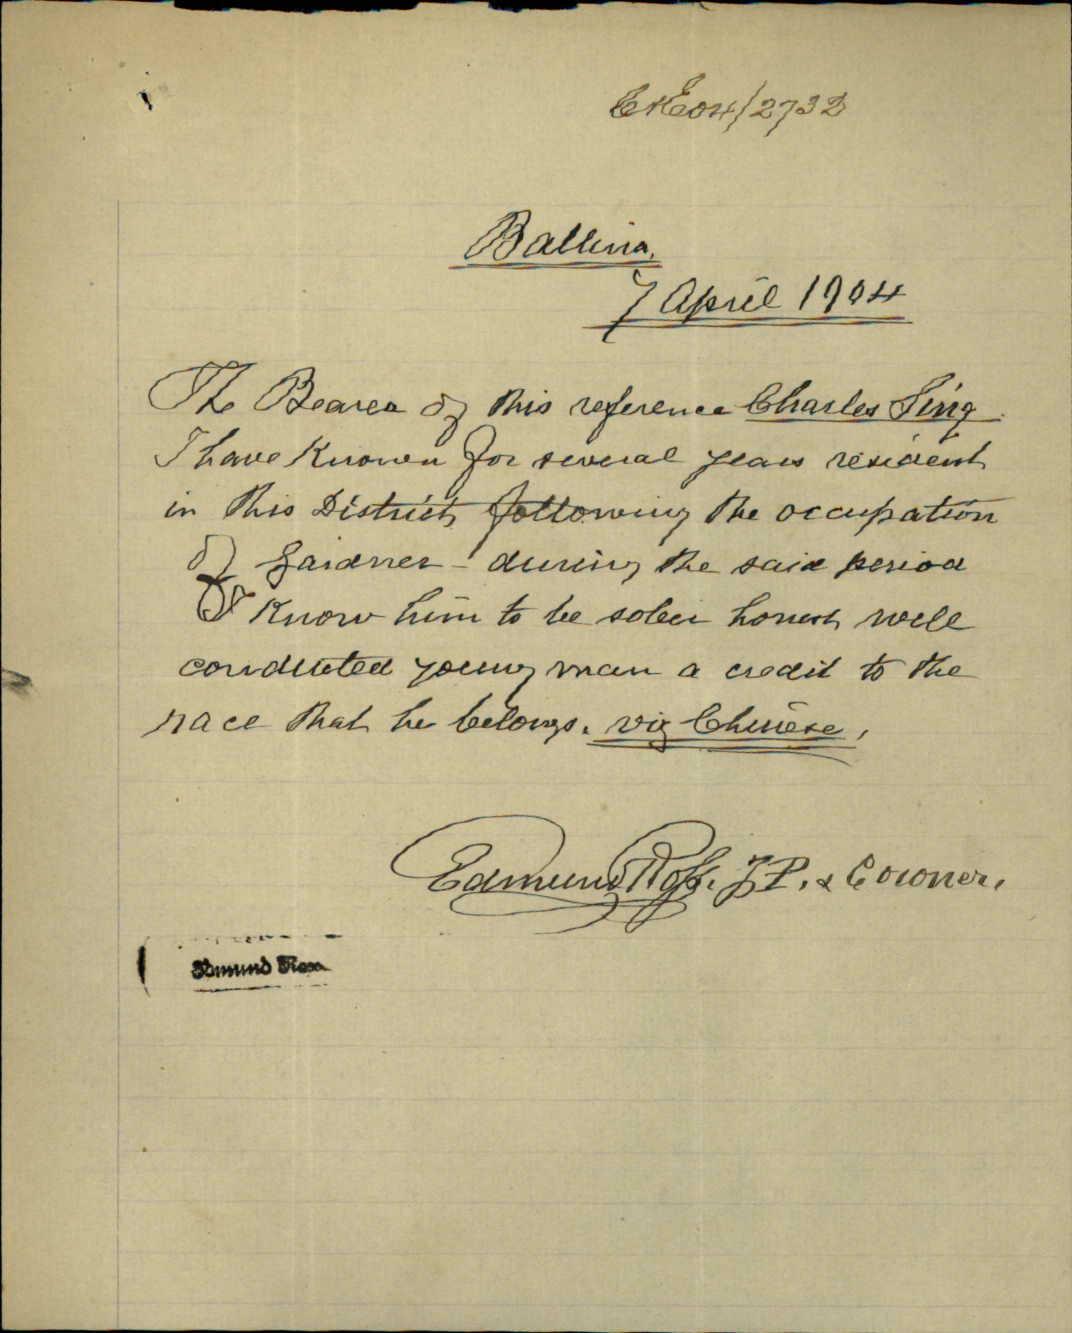 C&E04/2732
Ballina,
7 April 1904
The Bearer of this reference Charles Sing.
I have Known for several years resident
in this District following the occupation
of gardner - during the said period
I Know him to be sober honest, well
conducted young man a credit to the
race that he belongs. viz Chinese,
Edmund Ross. J P. & Coroner.
Edmund Ross